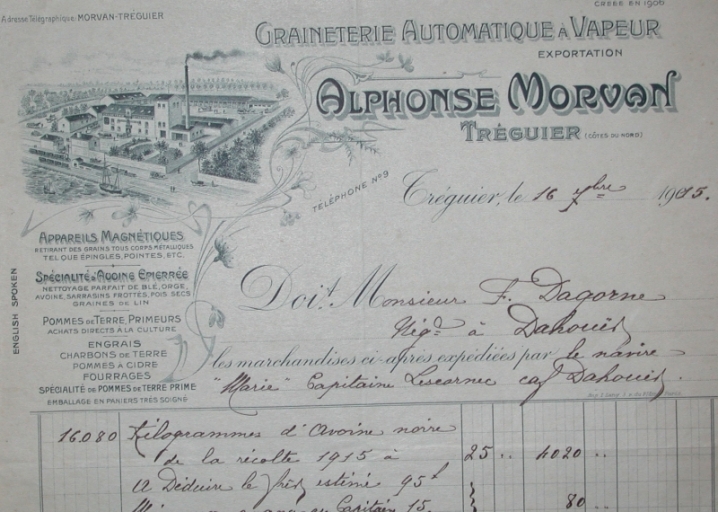 CRÉÉE EN 1906
Adresse Télégraphique MORVAN-TRÉGUIER
GRAINETERIE AUTOMATIQUE À VAPEUR
EXPORTATION
ALPHONSE MORVAN
TRÉGUIER (CÔTES DU NORD)
TELÉPHONE N°9
Tréguier, le 16 7bre 1915.
APPAREILS MAGNÉTIQUES
RETIRANT DES GRAINS TOUS CORPS MÉTALLIQUES
TEL QUE ÉPINGLES, POINTES, ETC.
SPÉCIALITÉ D'AVOINE EPIERRÉE
NETTOYAGE PARFAIT DE BLÉ, ORGE,
AVOINE, SARRASINS FROTTÉS, POIS SECS
GRAINES DE LIN
POMMES DE TERRE, PRIMEURS
ACHATS DIRECTS À LA CULTURE
ENGRAIS
CHARBONS DE TERRE
POMMES À CIDRE
FOURRAGES
SPÉCIALITÉ DE POMMES DE TERRE PRIME
EMBALLAGE EN PANIERS TRÈS SOIGNÉ
ENGLISH SPOKEN
Doit Monsieur F. Dagorne
Négt à Dahouët
les marchandises ci-après expédiées par le navire
"Marie" Capitaine Lescornec Dahouët.
16.080 Kilogrammes d'avoine noire
de la récolte 1915 à 25 " 4020 "
A Déduire le frêt estimé 95f
Capitain 15. 80 "